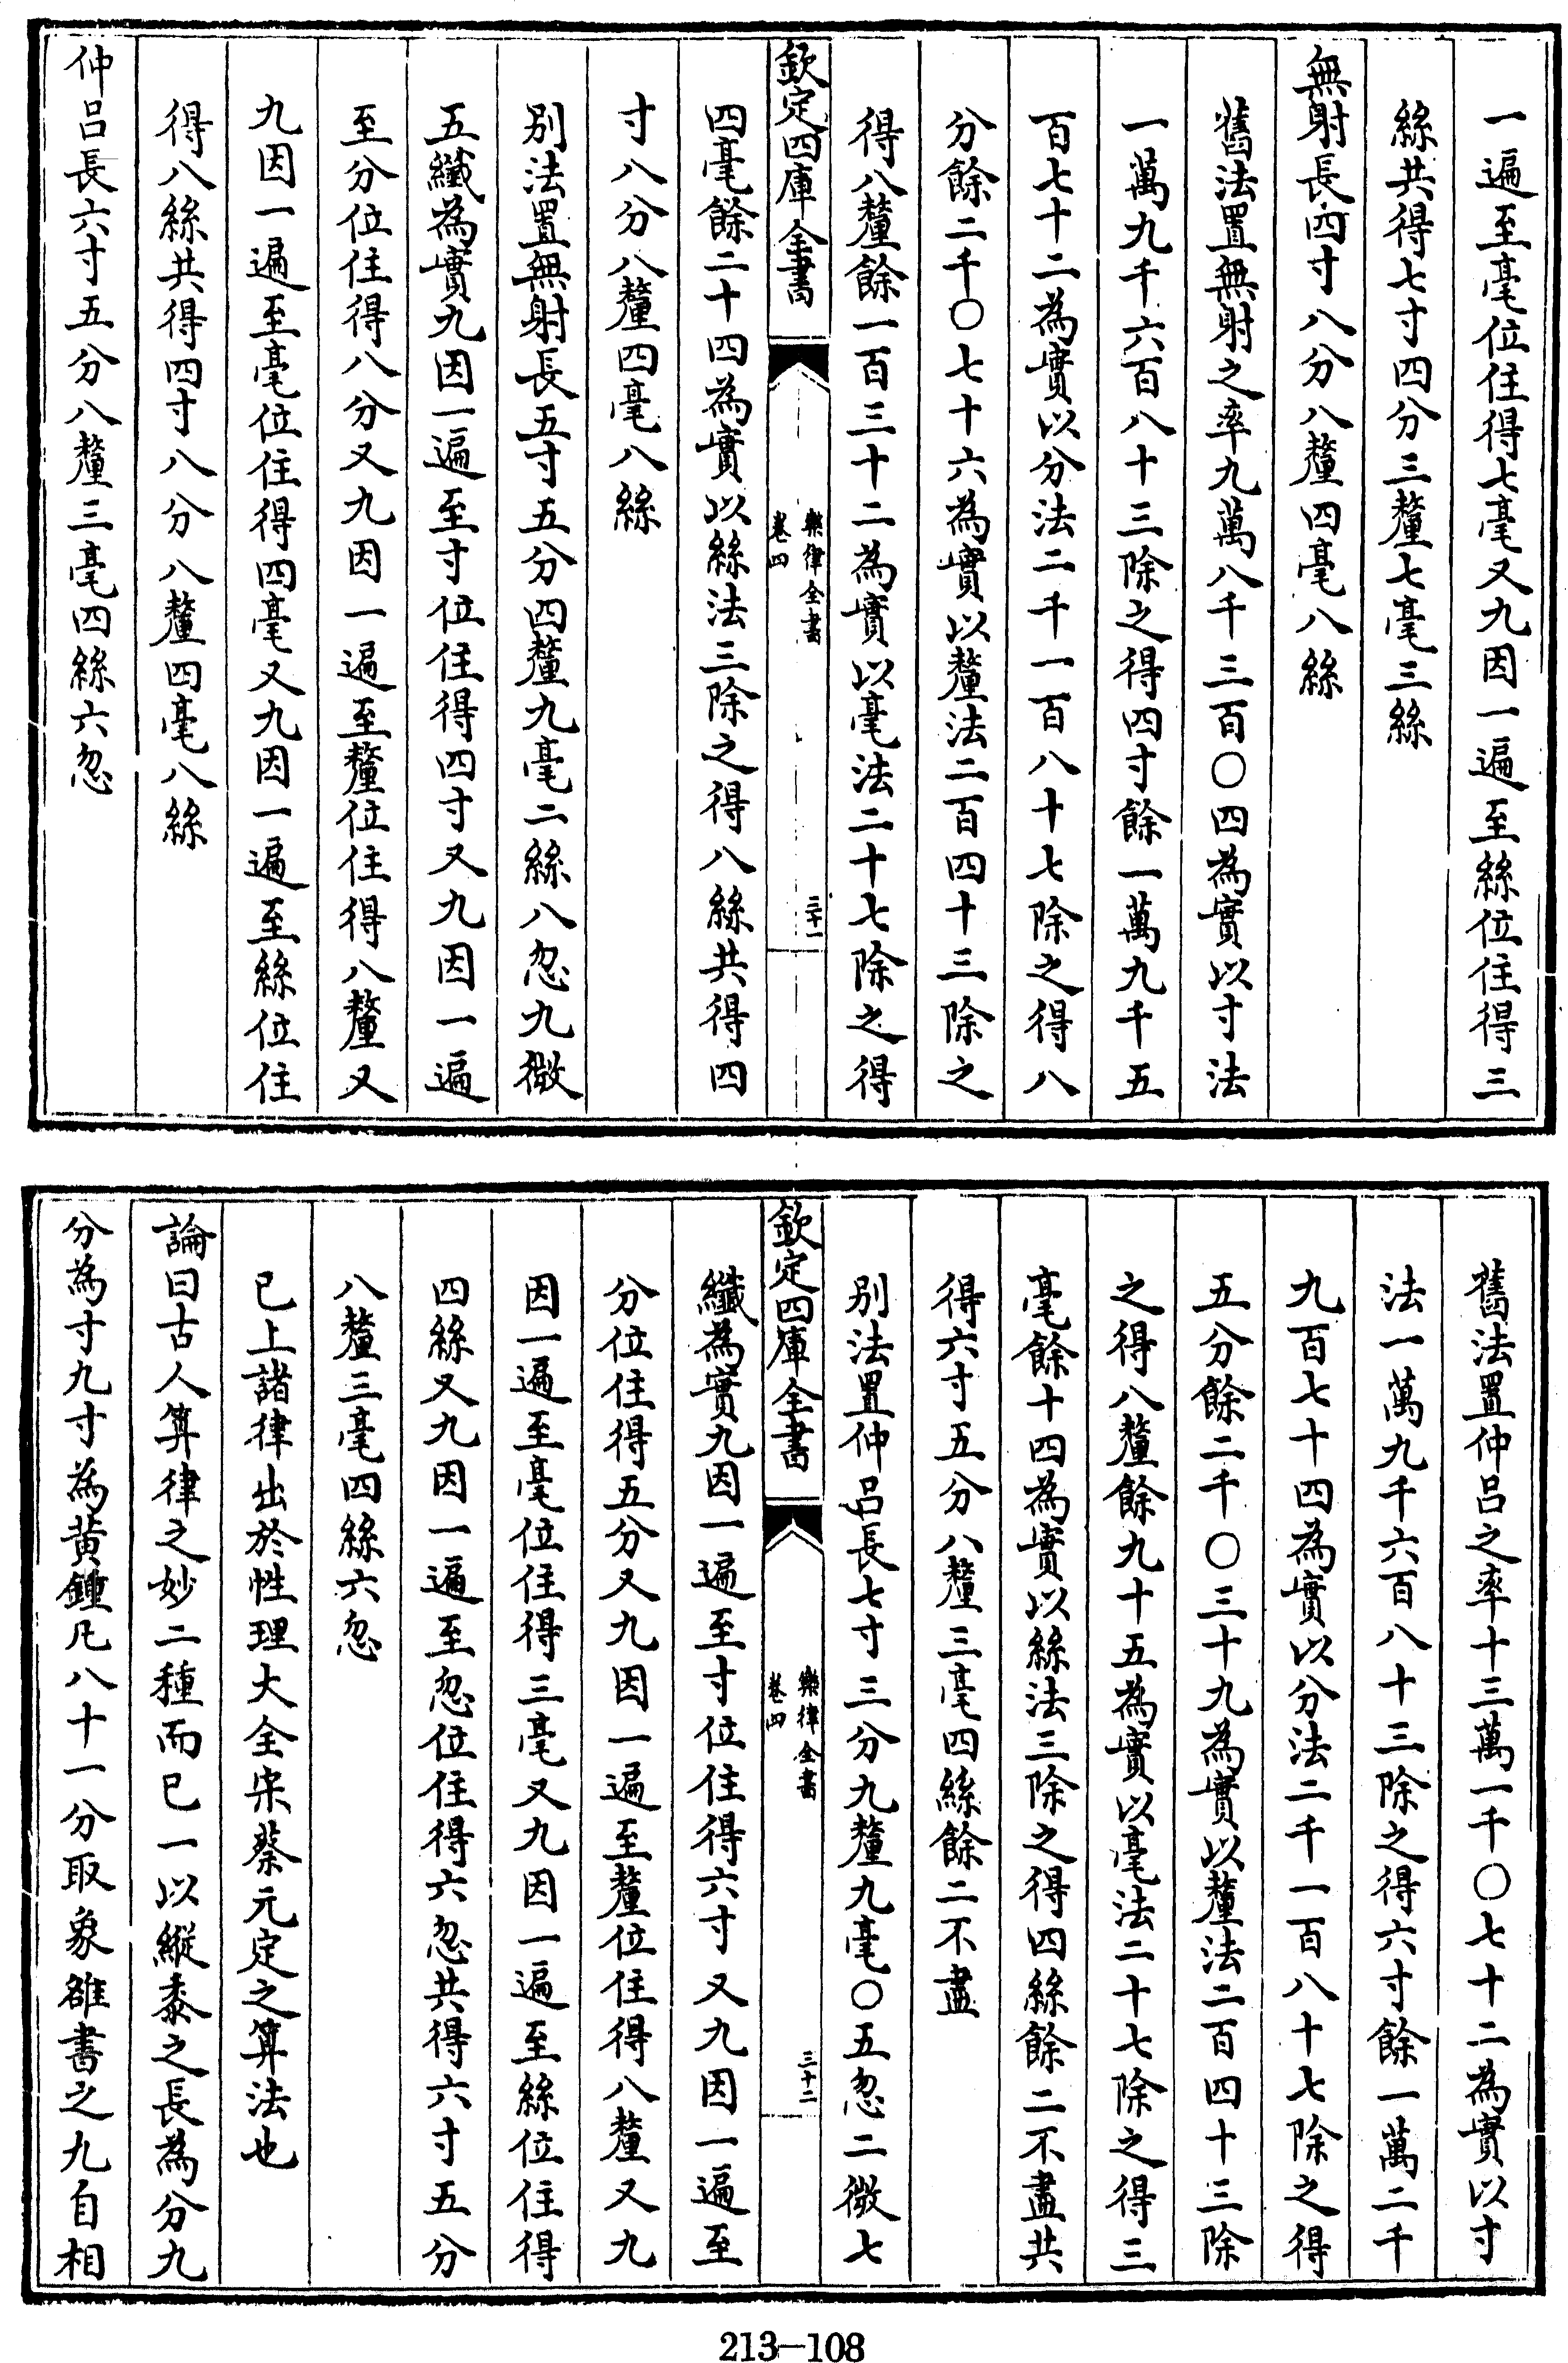 一遍至毫位住得七毫又九因一遍至絲位住得三
絲共得七寸四分三釐七毫三絲
無射長四寸八分八釐四毫八絲
舊法置無射之率九萬八千三百〇四為實以寸法
一萬九千六百八十三除之得四寸餘一萬九千五
百七十二為實以分法二千一百八十七除之得八
分餘二千〇七十六為實以釐法二百四十三除之
得八釐餘一百三十二為實以毫法二十七除之得
欽定四庫全書
樂律全書
卷四
三十一
四毫餘二十四為實以絲法三除之得八絲共得四
寸八分八釐四毫八絲
別法置無射長五寸五分四釐九毫二絲八忽九微
五纖為實九因一遍至寸位住得四寸又九因一遍
至分位住得八分又九因一遍至釐位住得八釐又
九因一遍至毫位住得四毫又九因一遍至絲位住
得八絲共得四寸八分八釐四毫八絲
仲呂長六寸五分八釐三毫四絲六忽
舊法置仲呂之率十三萬一千〇七十二為實以寸
法一萬九千六百八十三除之得六寸餘一萬二千
九百七十四為實以分法二千一百八十七除之得
五分餘二千〇三十九為實以釐法二百四十三除
之得八釐餘九十五為實以毫法二十七除之得三
毫餘十四為實以絲法三除之得四絲餘二不盡共
得六寸五分八釐三毫四絲餘二不盡
別法置仲呂長七寸三分九釐九毫〇五忽二微七
欽定四庫全書
樂律全書
卷四
三十二
纖為實九因一遍至寸位住得六寸又九因一遍至
分位住得五分又九因一遍至釐位住得八釐又九
因一遍至毫位住得三毫又九因一遍至絲位住得
四絲又九因一遍至忽位住得六忽共得六寸五分
八釐三毫四絲六忽
已上諸律出於性理大全宋蔡元定之算法也
論曰古人算律之妙二種而已一以縱黍之長為分九
分為寸九寸為黃鍾凡八十一分取象雒書之九自相
213-108